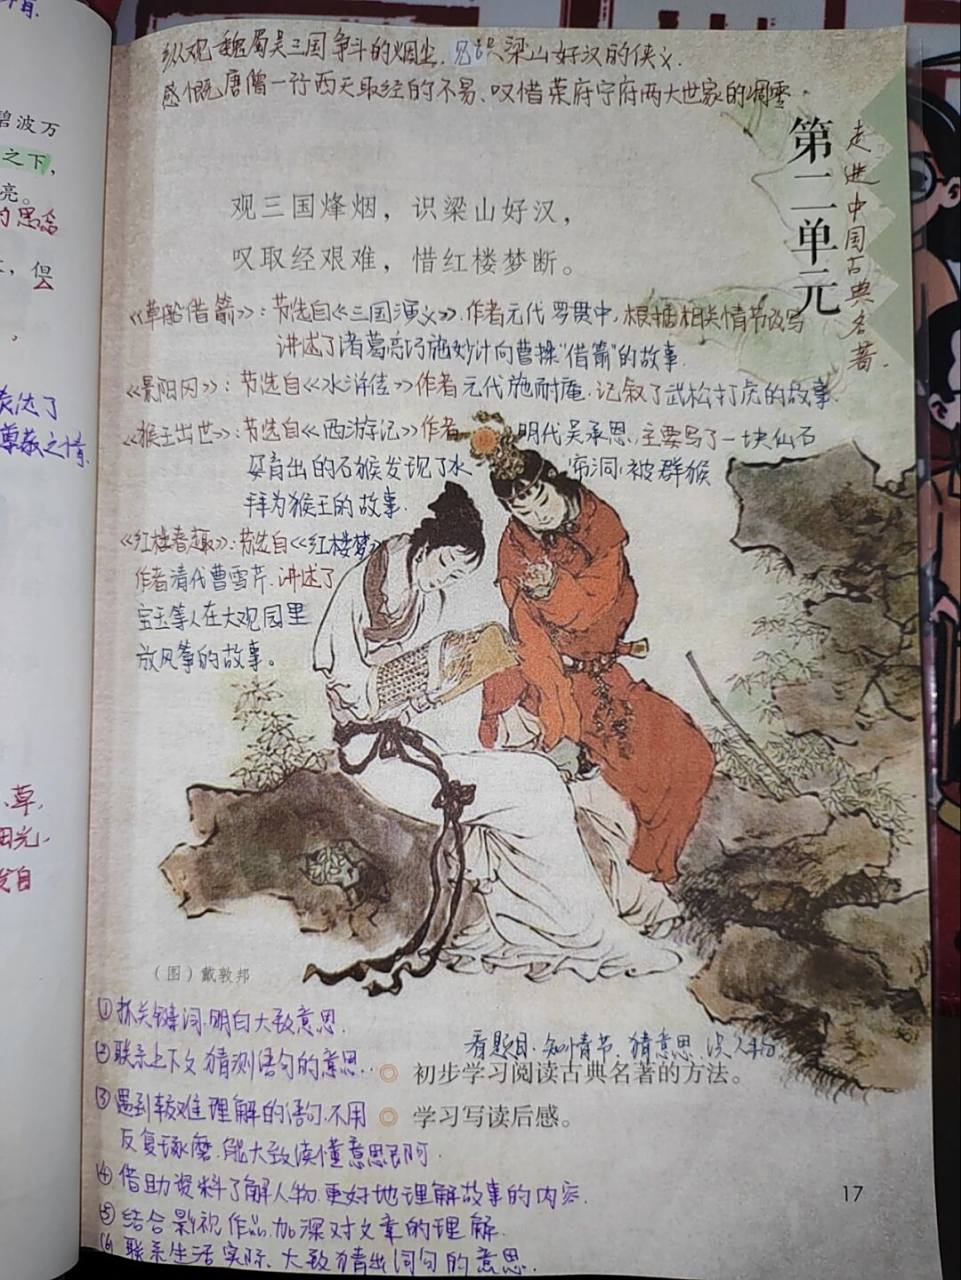 纵观魏蜀吴三国争斗的烟尘,见识梁山好汉的侠义.
感慨唐僧一行西天取经的不易、叹惜荣府宁府两大世家的凋零.
第二单元
走进中国古典名著.
观三国烽烟，识梁山好汉，
叹取经艰难，惜红楼梦断。
《草船借箭》:节选自《三国演义》.作者元代罗贯中,根据相关情节改写
讲述了诸葛亮巧施妙计向曹操"借箭"的故事.
《景阳冈》:节选自《水浒传》作者元代施耐庵.记叙了武松打虎的故事.
《猴王出世》:节选自《西游记》作者明代吴承恩.主要写了一块仙石
孕育出的石猴发现了水帘洞,被群猴
拜为猴王的故事.
《红楼春趣》:节选自《红楼梦》
作者清代曹雪芹.讲述了
宝玉等人在大观园里
放风筝的故事。
（图）戴敦邦
①抓关键词.明白大致意思.
②联系上下文猜测语句的意思.
③遇到较难理解的语句.不用
反复琢磨.能大致读懂意思即可.
④借助资料了解人物.更好地理解故事的内容.
⑤结合影视作品.加深对文章的理解.
⑥联系生活实际、大致猜出词句的意思.
看题目.知情节.猜意思.识人物.
初步学习阅读古典名著的方法。
学习写读后感。
17
碧波万
之下，
亮。
，但
表达了
尊敬之情.
、草,
阳光.